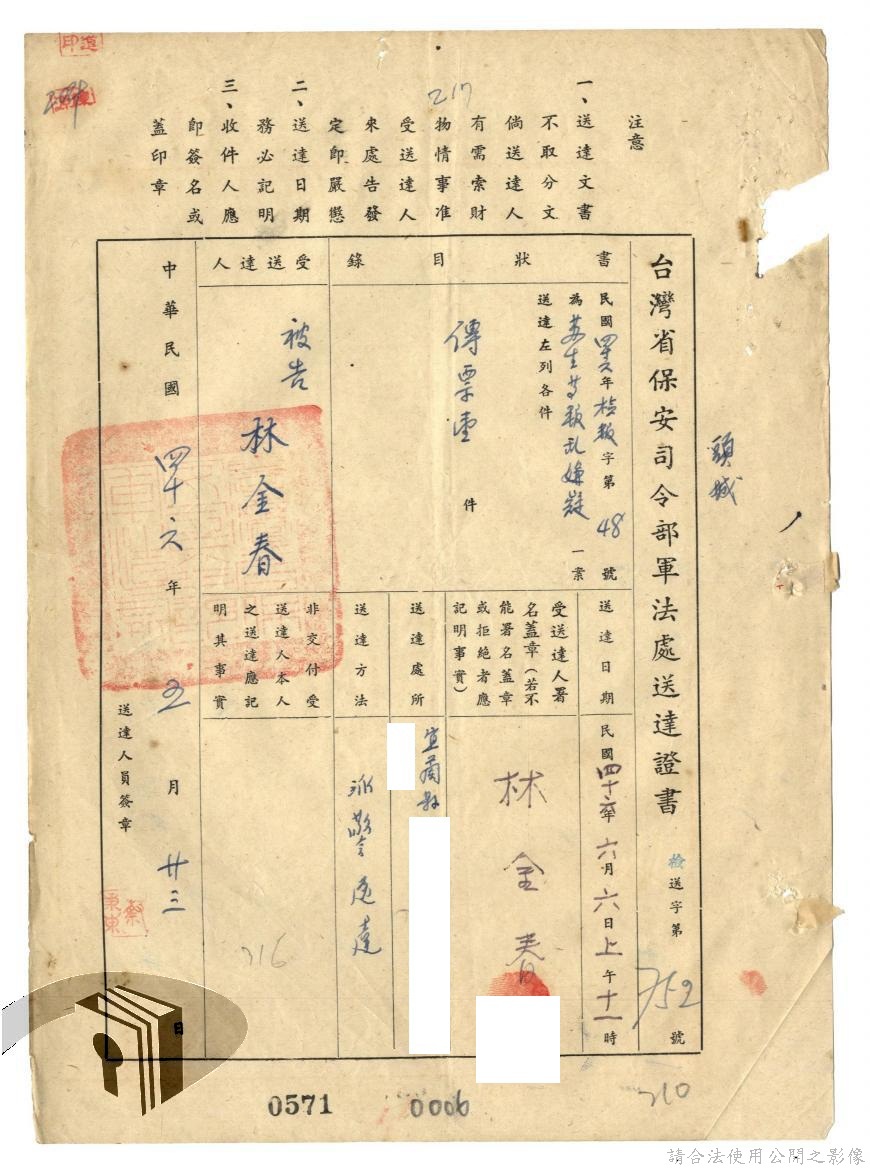 頭城
台灣省保安司令部軍法處送達證書
檢送字第752號
注意
一、送達文書不取分文倘送達人有需索財物情事准受送達人來處告發定即嚴懲
二、送達日期務必記明
三、收件人應即簽名或蓋印章
書狀目錄
民國四六年檢叛字第48號
為等叛乱嫌疑一案
送達左列各件
傳票壹件
受送達人
被告 林金春
送達日期
民國四十六年六月六日上午十一時
受送達人署名蓋章(若不能署名蓋章或拒絶者應記明事實)
林金春
送達處所
宜蘭縣
送達方法
派警送達
非交付受送達人本人之送達應記明其事實
中華民國四十六年五月廿三日
送達人員簽章
217
216
210
0571
0006
請合法使用公開之影像